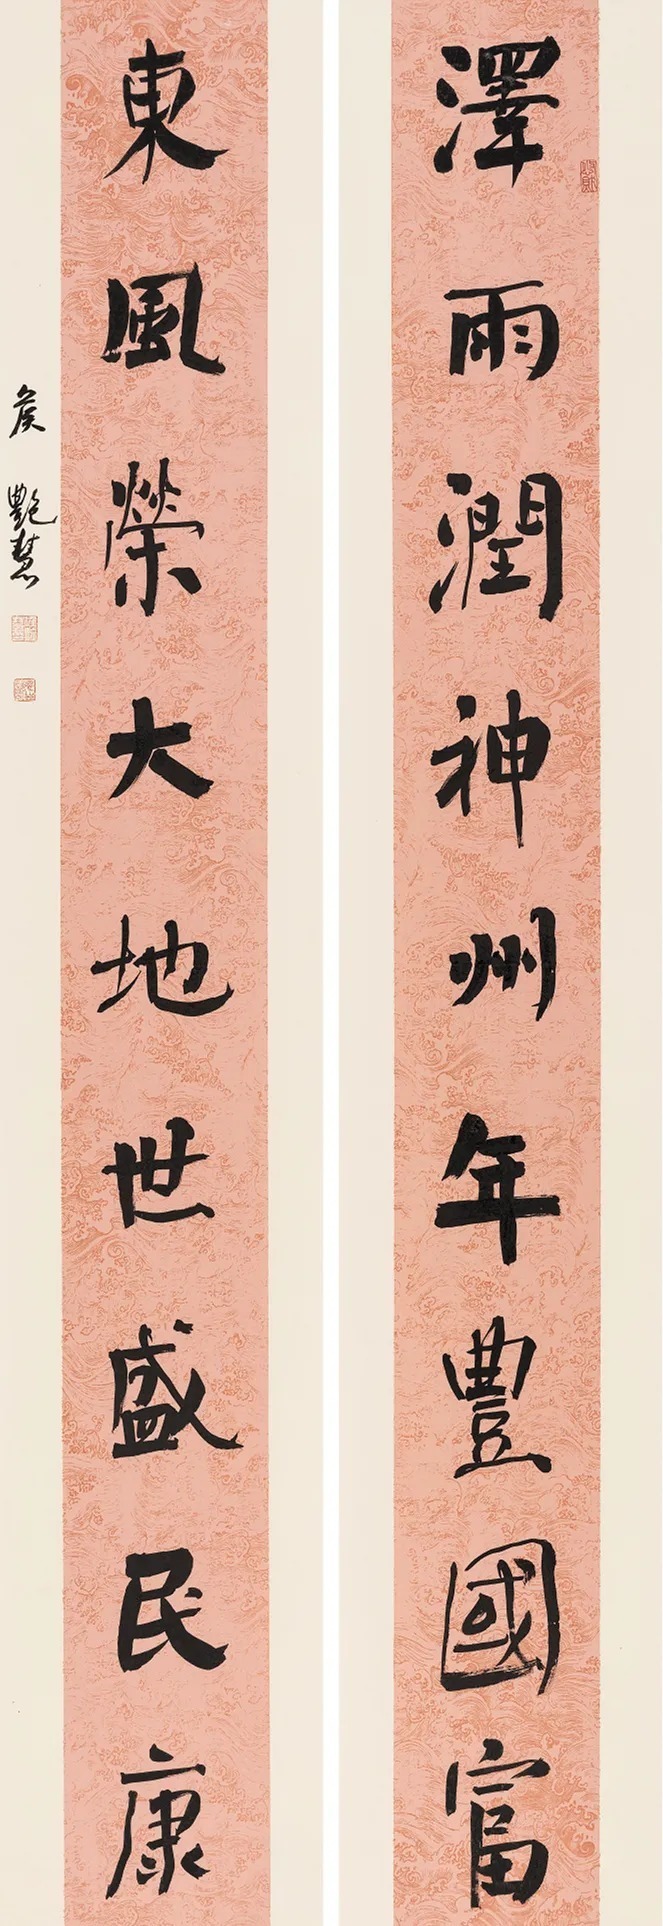 澤雨潤神州年豐國富
東風榮大地世盛民康
侯艷慧